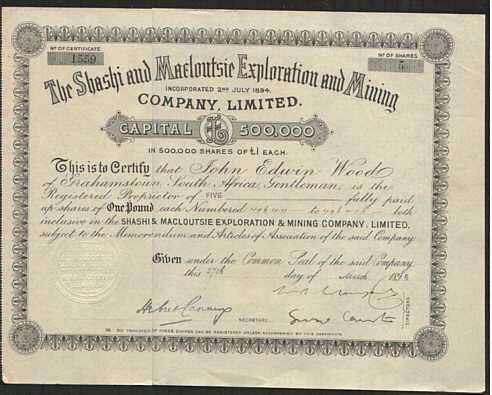 No OF CERTIFICATE
1559
No OF SHARES
5
The Shashi and Macloutsie Exploration and Mining
INCORPORATED 2ND JULY 1894.
COMPANY, LIMITED.
CAPITAL £ 500,000
IN 500,000 SHARES OF £1 EACH.
This is to Certify that John Edwin Wood
of Grahamstown, South Africa, Gentleman, is the
Registered Proprietor of FIVE fully paid
up shares of One Pound each Numbered to both
inclusive in the SHASHI & MACLOUTSIE EXPLORATION & MINING COMPANY, LIMITED,
subject to the Memorandum and Articles of Association of the said Company
Given under the Common Seal of the said Company
this 27th day of March 189
SECRETARY
DIRECTORS
NO TRANSFER OF THESE SHARES CAN BE REGISTERED UNLESS ACCOMPANIED BY THIS CERTIFICATE.